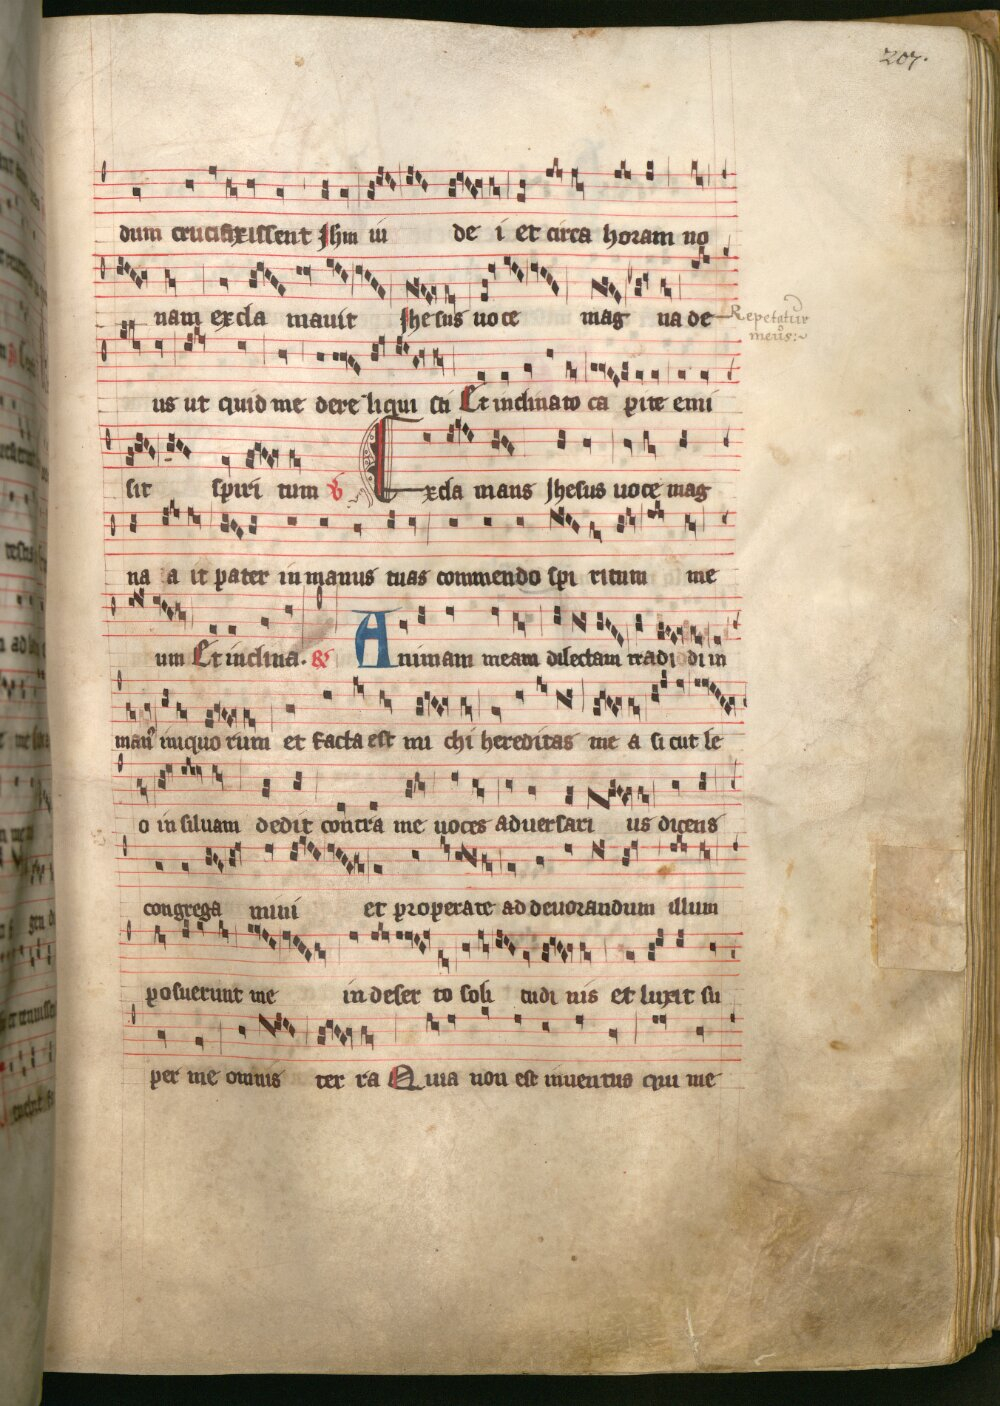 207.
dum crucifixissent Jhm iu de i et circa horam no
nam excla mauit Jhesus uoce mag na de
Repetatur
meus:~
us ut quid me dere liqui sti Et inclinato ca pite emi
sit spiri tum V Excla mans Jhesus uoce mag
na a it pater in manus tuas commendo spi ritum me
um Et inclina. R Animam meam dilectam tradi di in
man9 iniquo rum et facta est mi chi hereditas me a si cut le
o in siluam dedit contra me uoces aduersari us dicens
congrega mini et properate ad deuorandum illum
posuerunt me in deser to soli tudi nis et luxit su
per me omnis ter ra Quia non est inuentus qui me